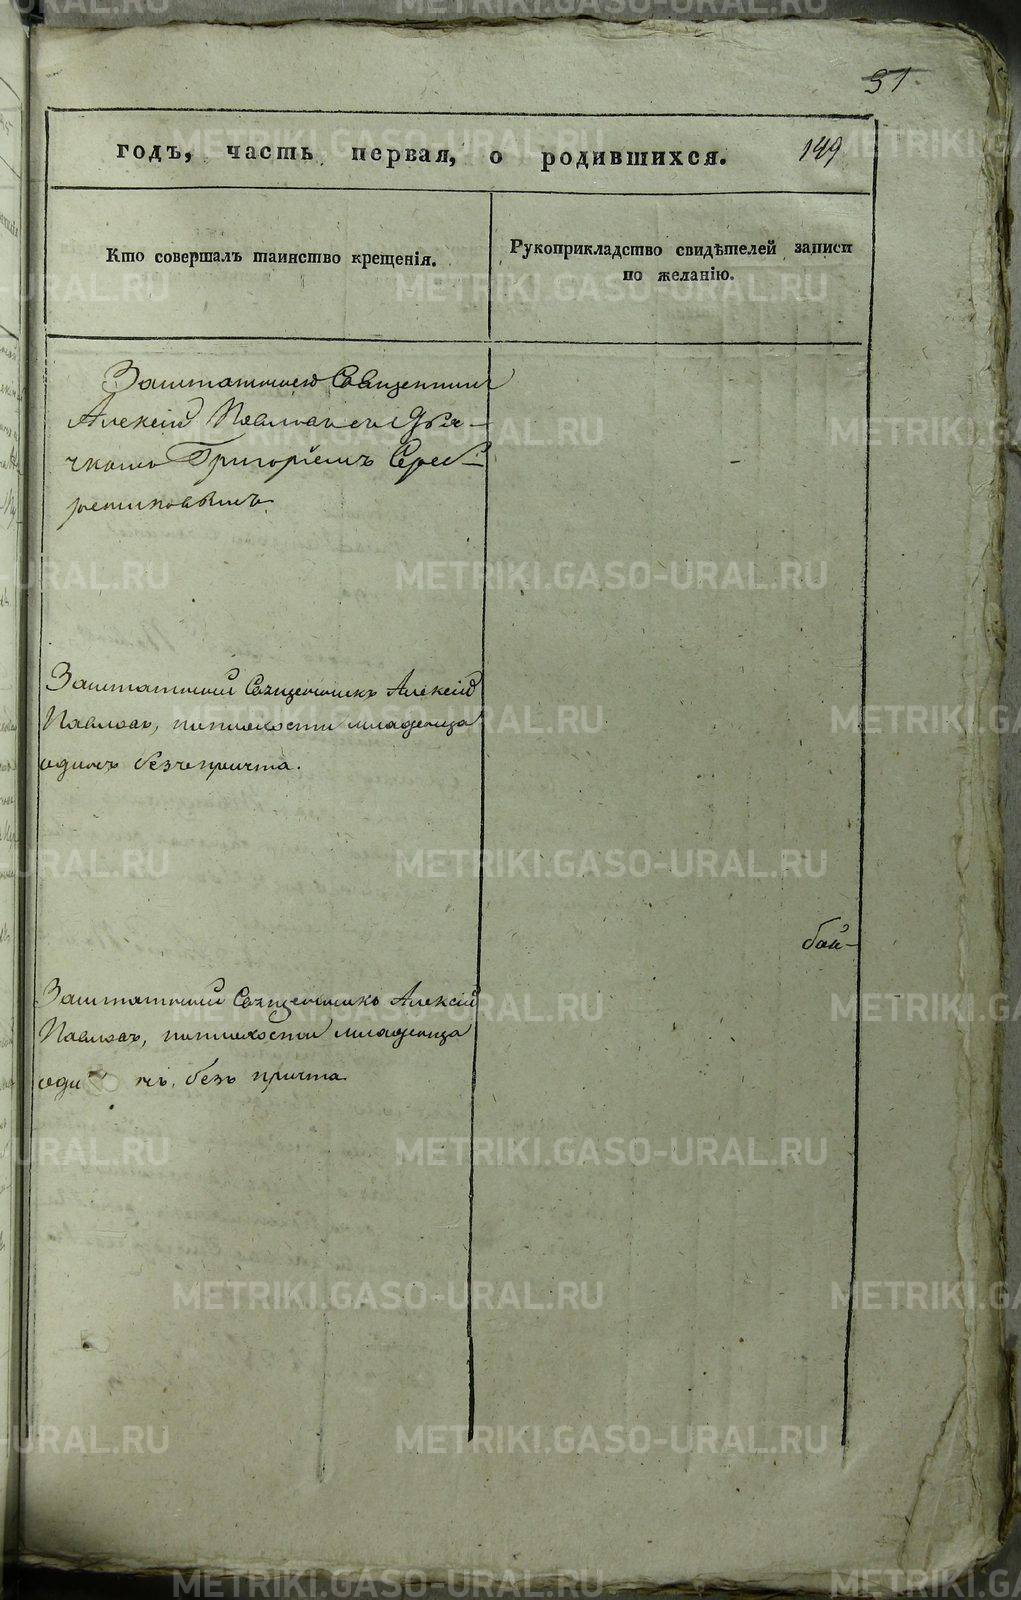 31
годъ, часть первая, о родившихся. 149
Кто совершалъ таинство крещенія.
Рукоприкладство свидѣтелей записи
по желанію.
Заштатной Священник
Алексій Павловъ съ Дья-
чкомъ Григоріемъ Сереб-
рениковымъ
Заштатный Священникъ Алексій
Павловъ, по плохости младенца
одинъ безъ причта.
Заштатный Священникъ Алексій
Павловъ, по плохости младенца
одинъ, безъ причта.
METRIKI.GASO-URAL.RU